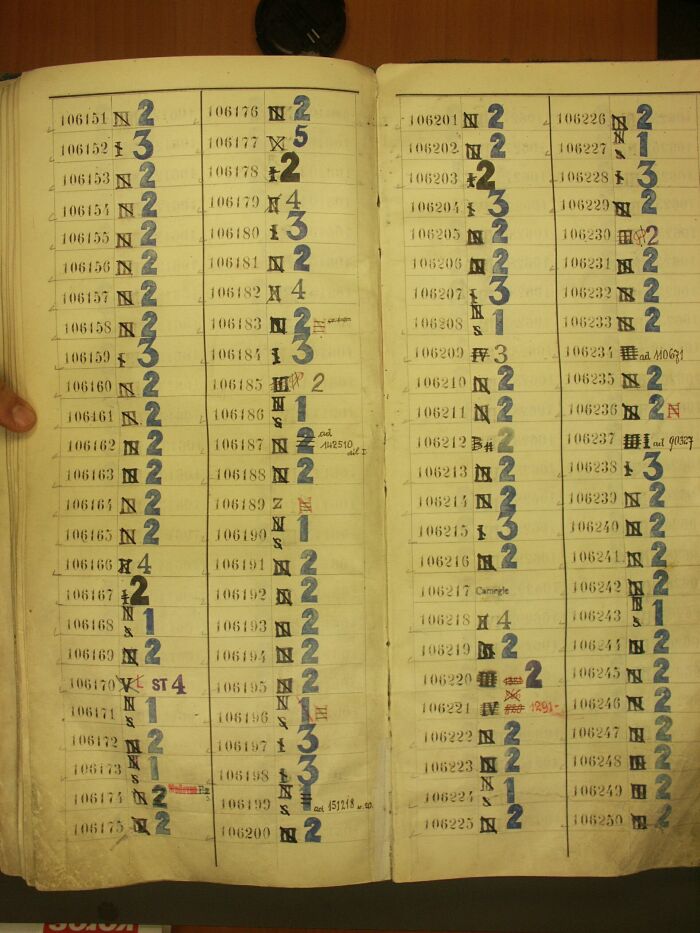 106151 N 2
106152 I 3
106153 N 2
106154 N 2
106155 N 2
106156 N 2
106157 N 2
106158 N 2
106159 I 3
106160 N 2
106161 N 2
106162 N 2
106163 N 2
106164 N 2
106165 N 2
106166 N 4
106167 I 2
106168 N s 1
106169 N 2
106170 V ST 4
106171 N s 1
106172 N 2
106173 N s 1
106174 N 2
106175 N 2
106176 N 2
106177 X 5
106178 I 2
106179 N 4
106180 I 3
106181 N 2
106182 N 4
106183 N 2 III
106184 I 3
106185 III 2
106186 N s 1
106187 N 2 ad 142510
106188 N 2
106189 Z III
106190 N s 1
106191 N 2
106192 N 2
106193 N 2
106194 N 2
106195 N 2
106196 N s 1 III
106197 I 3
106198 I 3
106199 N s 1 ad 151218
106200 N 2
106201 N 2
106202 N 2
106203 I 2
106204 I 3
106205 N 2
106206 N 2
106207 I 3
106208 N s 1
106209 IV 3
106210 N 2
106211 N 2
106212 B# 2
106213 N 2
106214 N 2
106215 I 3
106216 N 2
106217 Carnegie
106218 N 4
106219 N 2
106220 III 2
106221 IV 1291-
106222 N 2
106223 N 2
106224 N s 1
106225 N 2
106226 N 2
106227 N s 1
106228 I 3
106229 N 2
106230 III 2
106231 N 2
106232 N 2
106233 N 2
106234 III ad 110671
106235 N 2
106236 N 2 N
106237 III I ad 90327
106238 I 3
106239 N 2
106240 N 2
106241 N 2
106242 N 2
106243 N s 1
106244 N 2
106245 N 2
106246 N 2
106247 N 2
106248 N 2
106249 N 2
106250 N 2